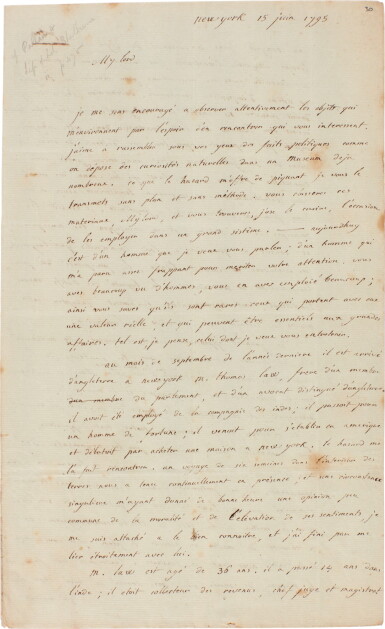 30.
new york 15 juin 1795
My lord
je me sens encouragé a observer attentivement les objets qui
m'environnent par l'espoir d'en rencontrer qui vous interessent.
j'aime a rassembler sous vos yeux des faits politiques comme
on dépose des curiosités naturelles dans un museum deja
nombreux. ce que le hazard m'offre de piquant je vous le
transmets sans plan et sans méthode. vous classerez ces
materiaux, Mylord, et vous trouverez, j'en suis certain, l'occasion
de les employer dans un grand sisteme. — aujourdhuy
c'est d'un homme que je veux vous parler; d'un homme qui
m'a paru assez frappant pour meriter votre attention. vous
avez beaucoup vu d'hommes, vous en avez employé beaucoup;
ainsi vous savez qu'ils sont rares ceux qui portent avec eux
une valeur réelle, et qui peuvent être essentiels aux grandes
affaires. tel est je pense, celui dont je veux vous entretenir.
au mois de septembre de l'année derniere il est arrivé
d'angleterre a newyork m. thomas law frere d'un membre
du parlement, et d'un avocat distingué d'angleterre
il avoit été employé de la compagnie des indes; il passoit pour
un homme de fortune; il venoit pour s'etablir en amerique
et débutoit par acheter une maison a new york. le hazard me
le fit rencontrer. un voyage de six semaines dans l'interieur des
terres nous a tenus continuellement en présence, et une circonstance
singuliere m'ayant donné de bonne heure une opinion peu
commune de sa moralité et de l'élévation de ses sentiments je
me suis attaché a le bien connoitre, et j'ai fini par me
lier étroitement avec lui.
m. law est agé de 36 ans, il a passé 14 ans dans
l'inde; il étoit collecteur des revenus, chef juge et magistrat